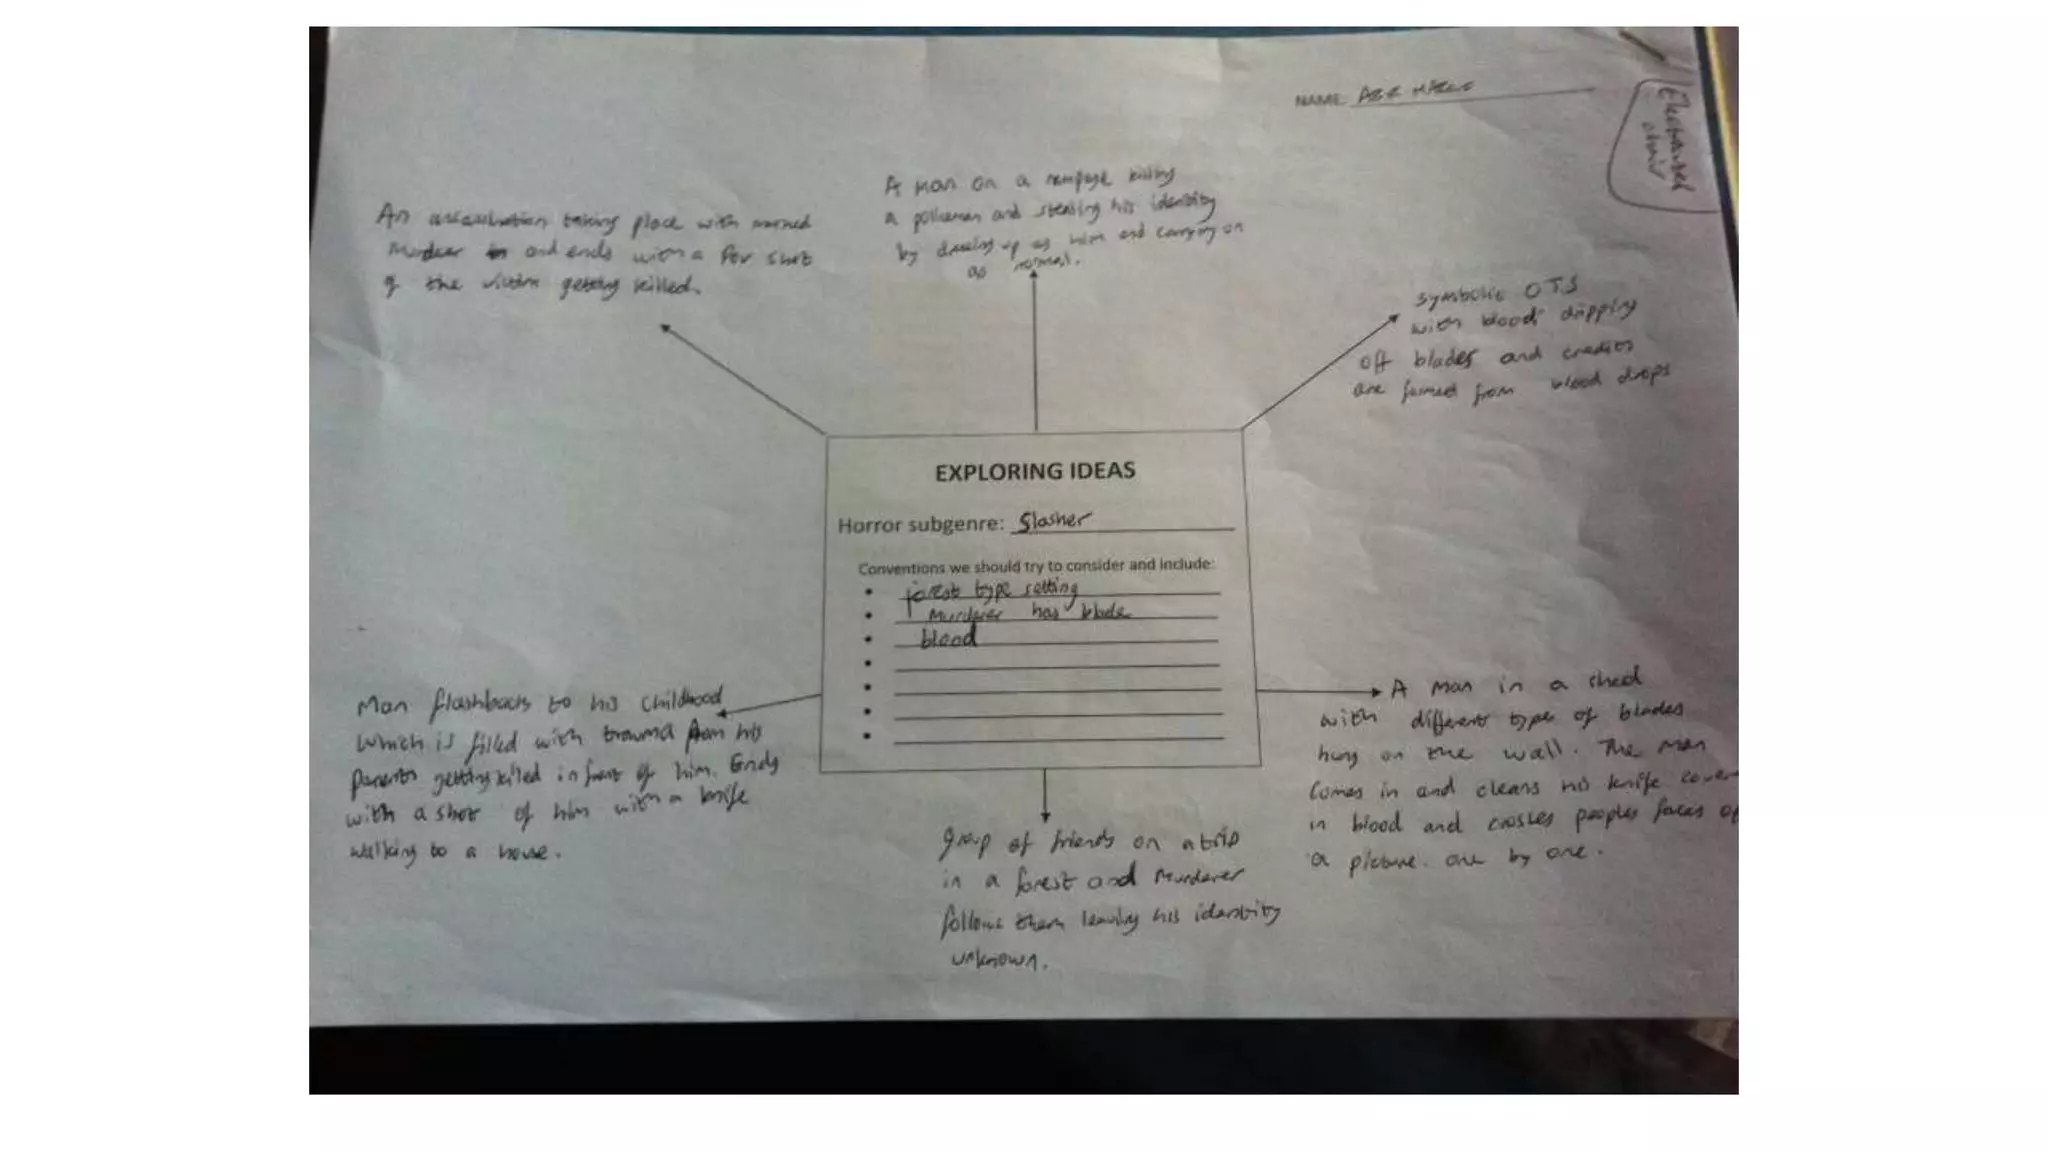 NAME: ABE
Electrical
chair
A man on a rampage killing
a policeman and stealing his identity
by dressing up as him and carrying on
as normal.
An assassination taking place with
murder and ends with a POV shot
of the victim getting killed.
symbolic OTS
with blood dripping
off blades and credits
are formed from blood drops
EXPLORING IDEAS
Horror subgenre: Slasher
Conventions we should try to consider and include:
• forest type setting
• Murderer has blade
• blood
•
•
•
•
Man flashbacks to his childhood
which is filled with trauma from his
parents getting killed infront of him. Ends
with a shot of him with a knife
walking to a house.
A man in a shed
with different types of blades
hung on the wall. The man
comes in and cleans his knife cover
in blood and crosses peoples faces of
a picture one by one.
Group of friends on a trip
in a forest and murderer
follows them leaving his identity
unknown.